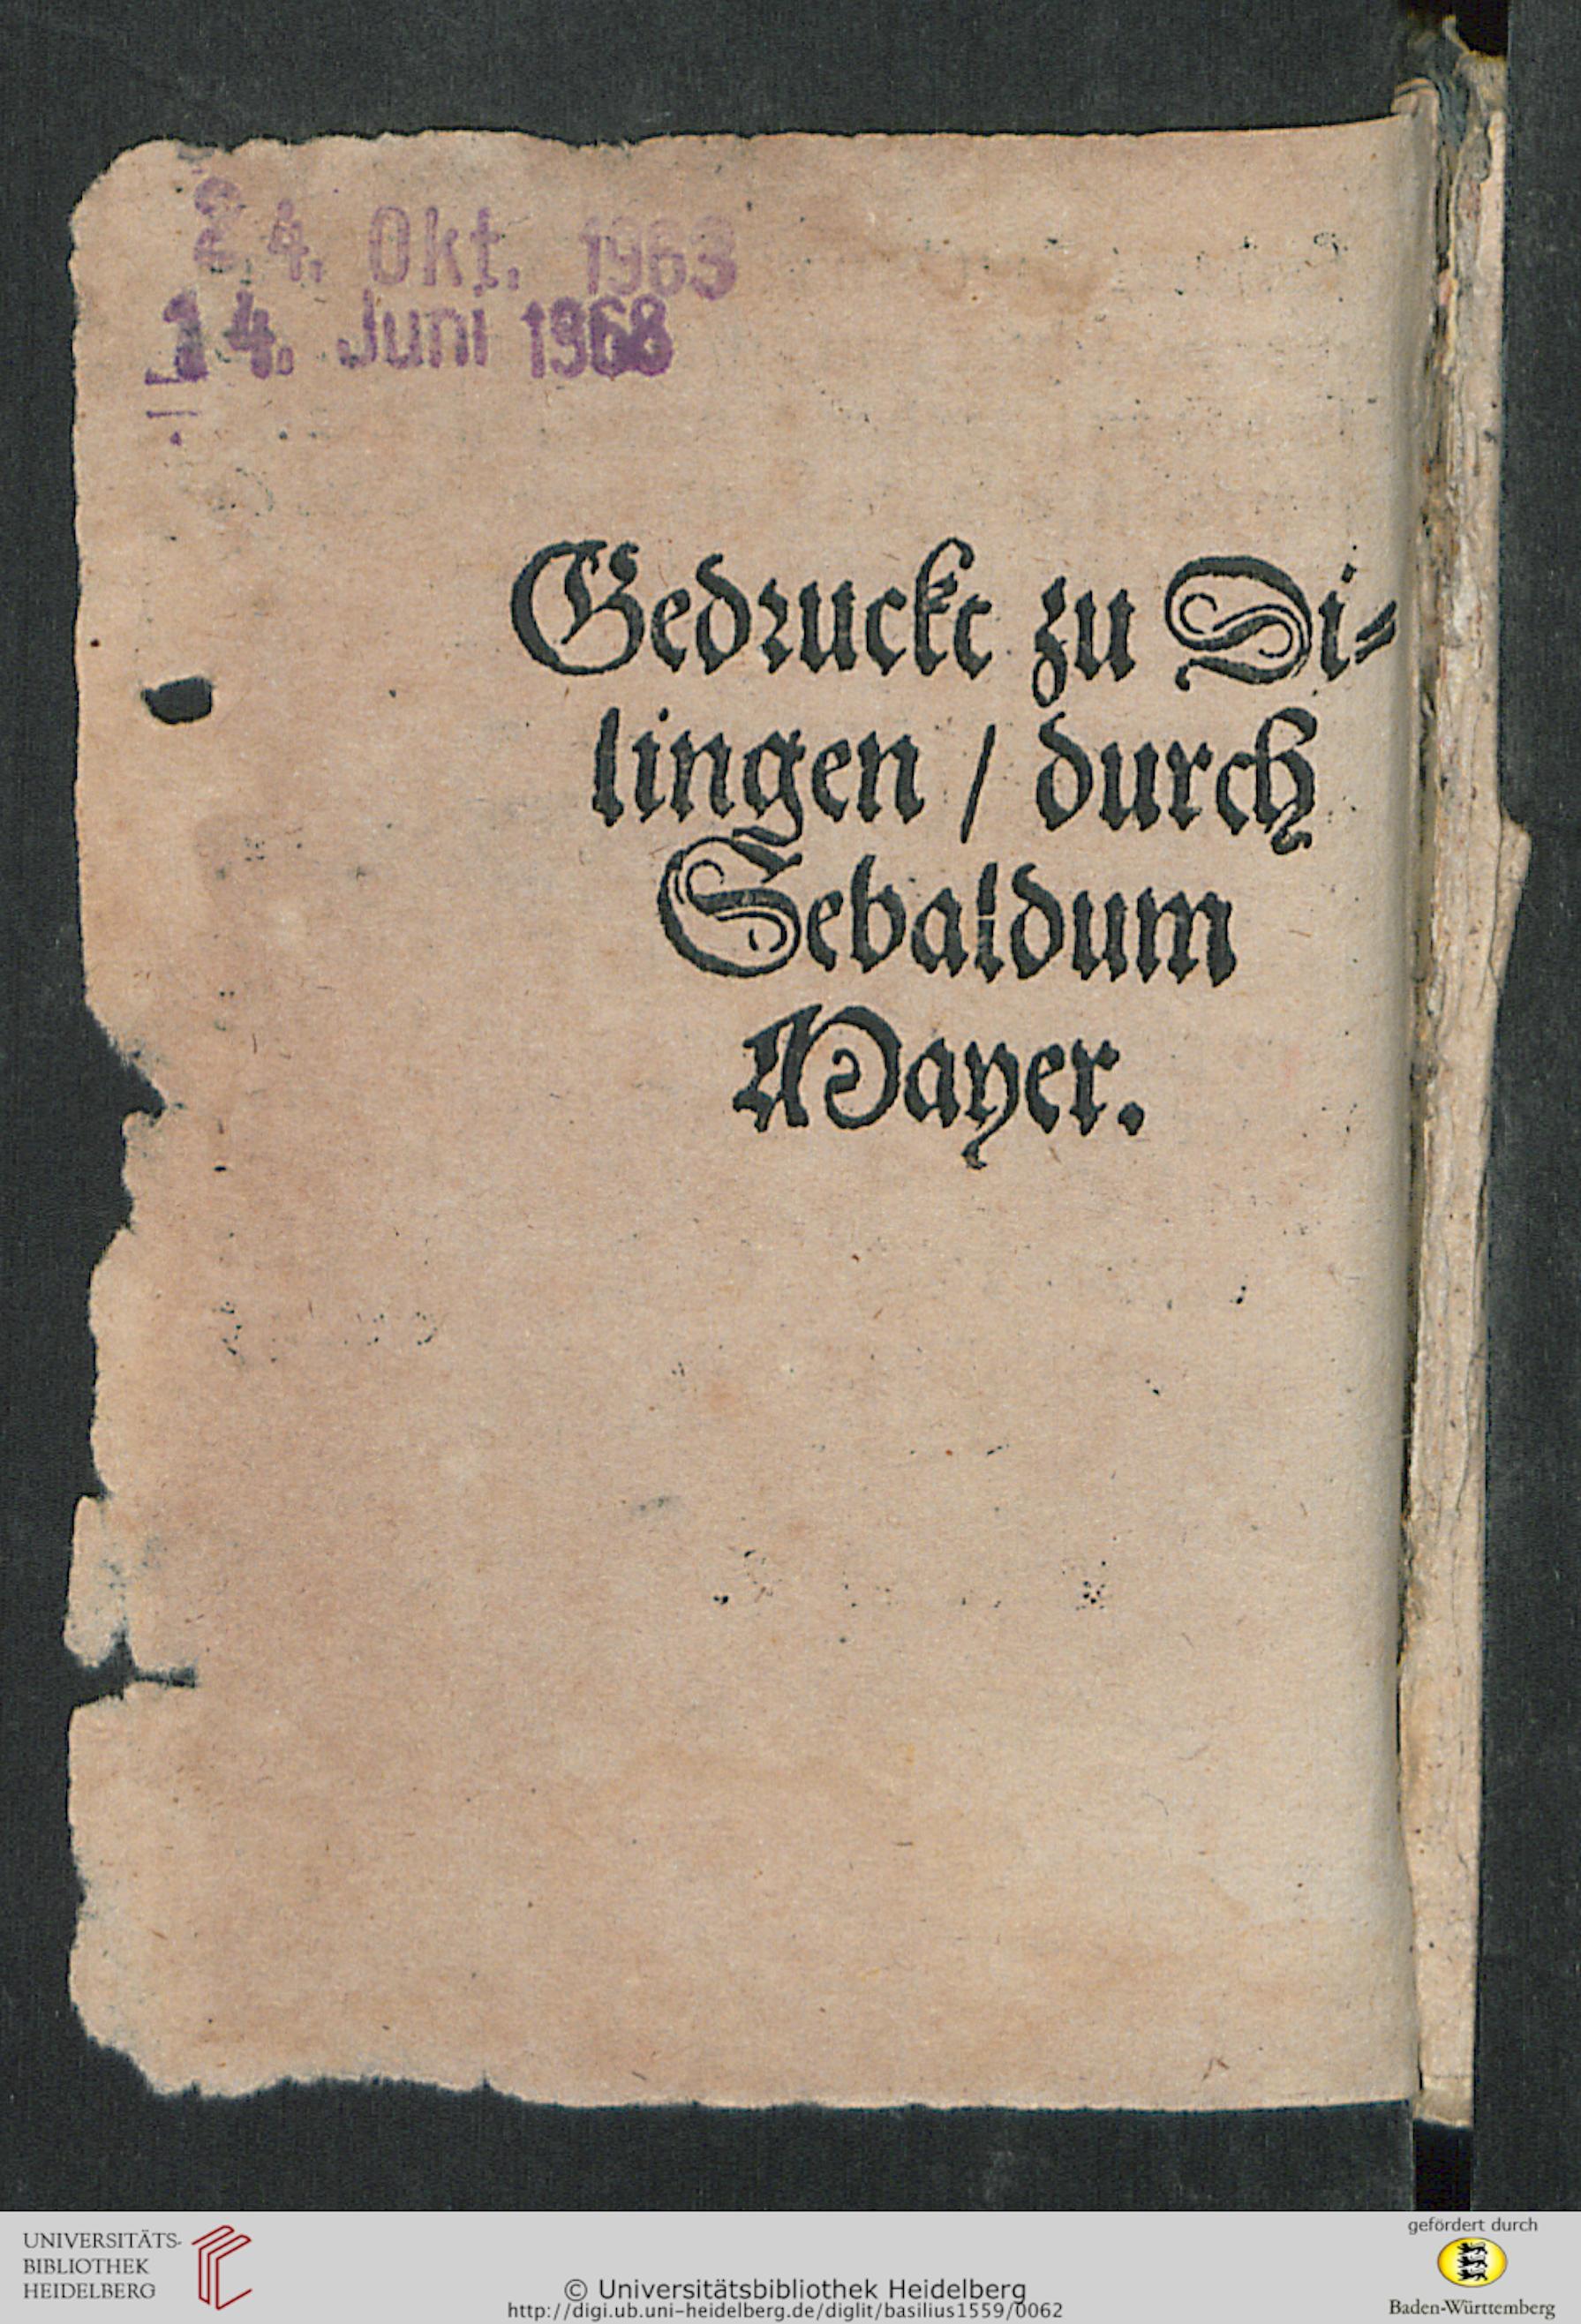 24. Okt. 1963
14. Juni 1968
Gedruckt zu Di⸗
lingen / durch
Sebaldum
Mayer.
UNIVERSITÄTS-
BIBLIOTHEK
HEIDELBERG
© Universitätsbibliothek Heidelberg
http://digi.ub.uni-heidelberg.de/diglit/basilius1559/0062
gefördert durch
Baden-Württemberg